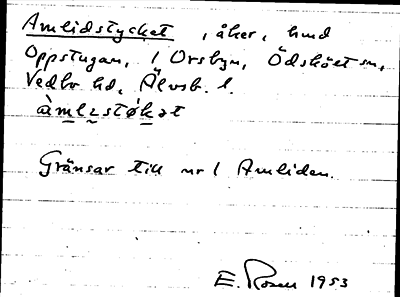 Amlidstycket, åker, hmd
Oppstugan, 1 Orsbyn, Ödskölt sn,
Vedbo hd, Älvsb. l.
àmlɩstøkət
Gränsar till nr 1 Amliden.
E. Rosen 1953